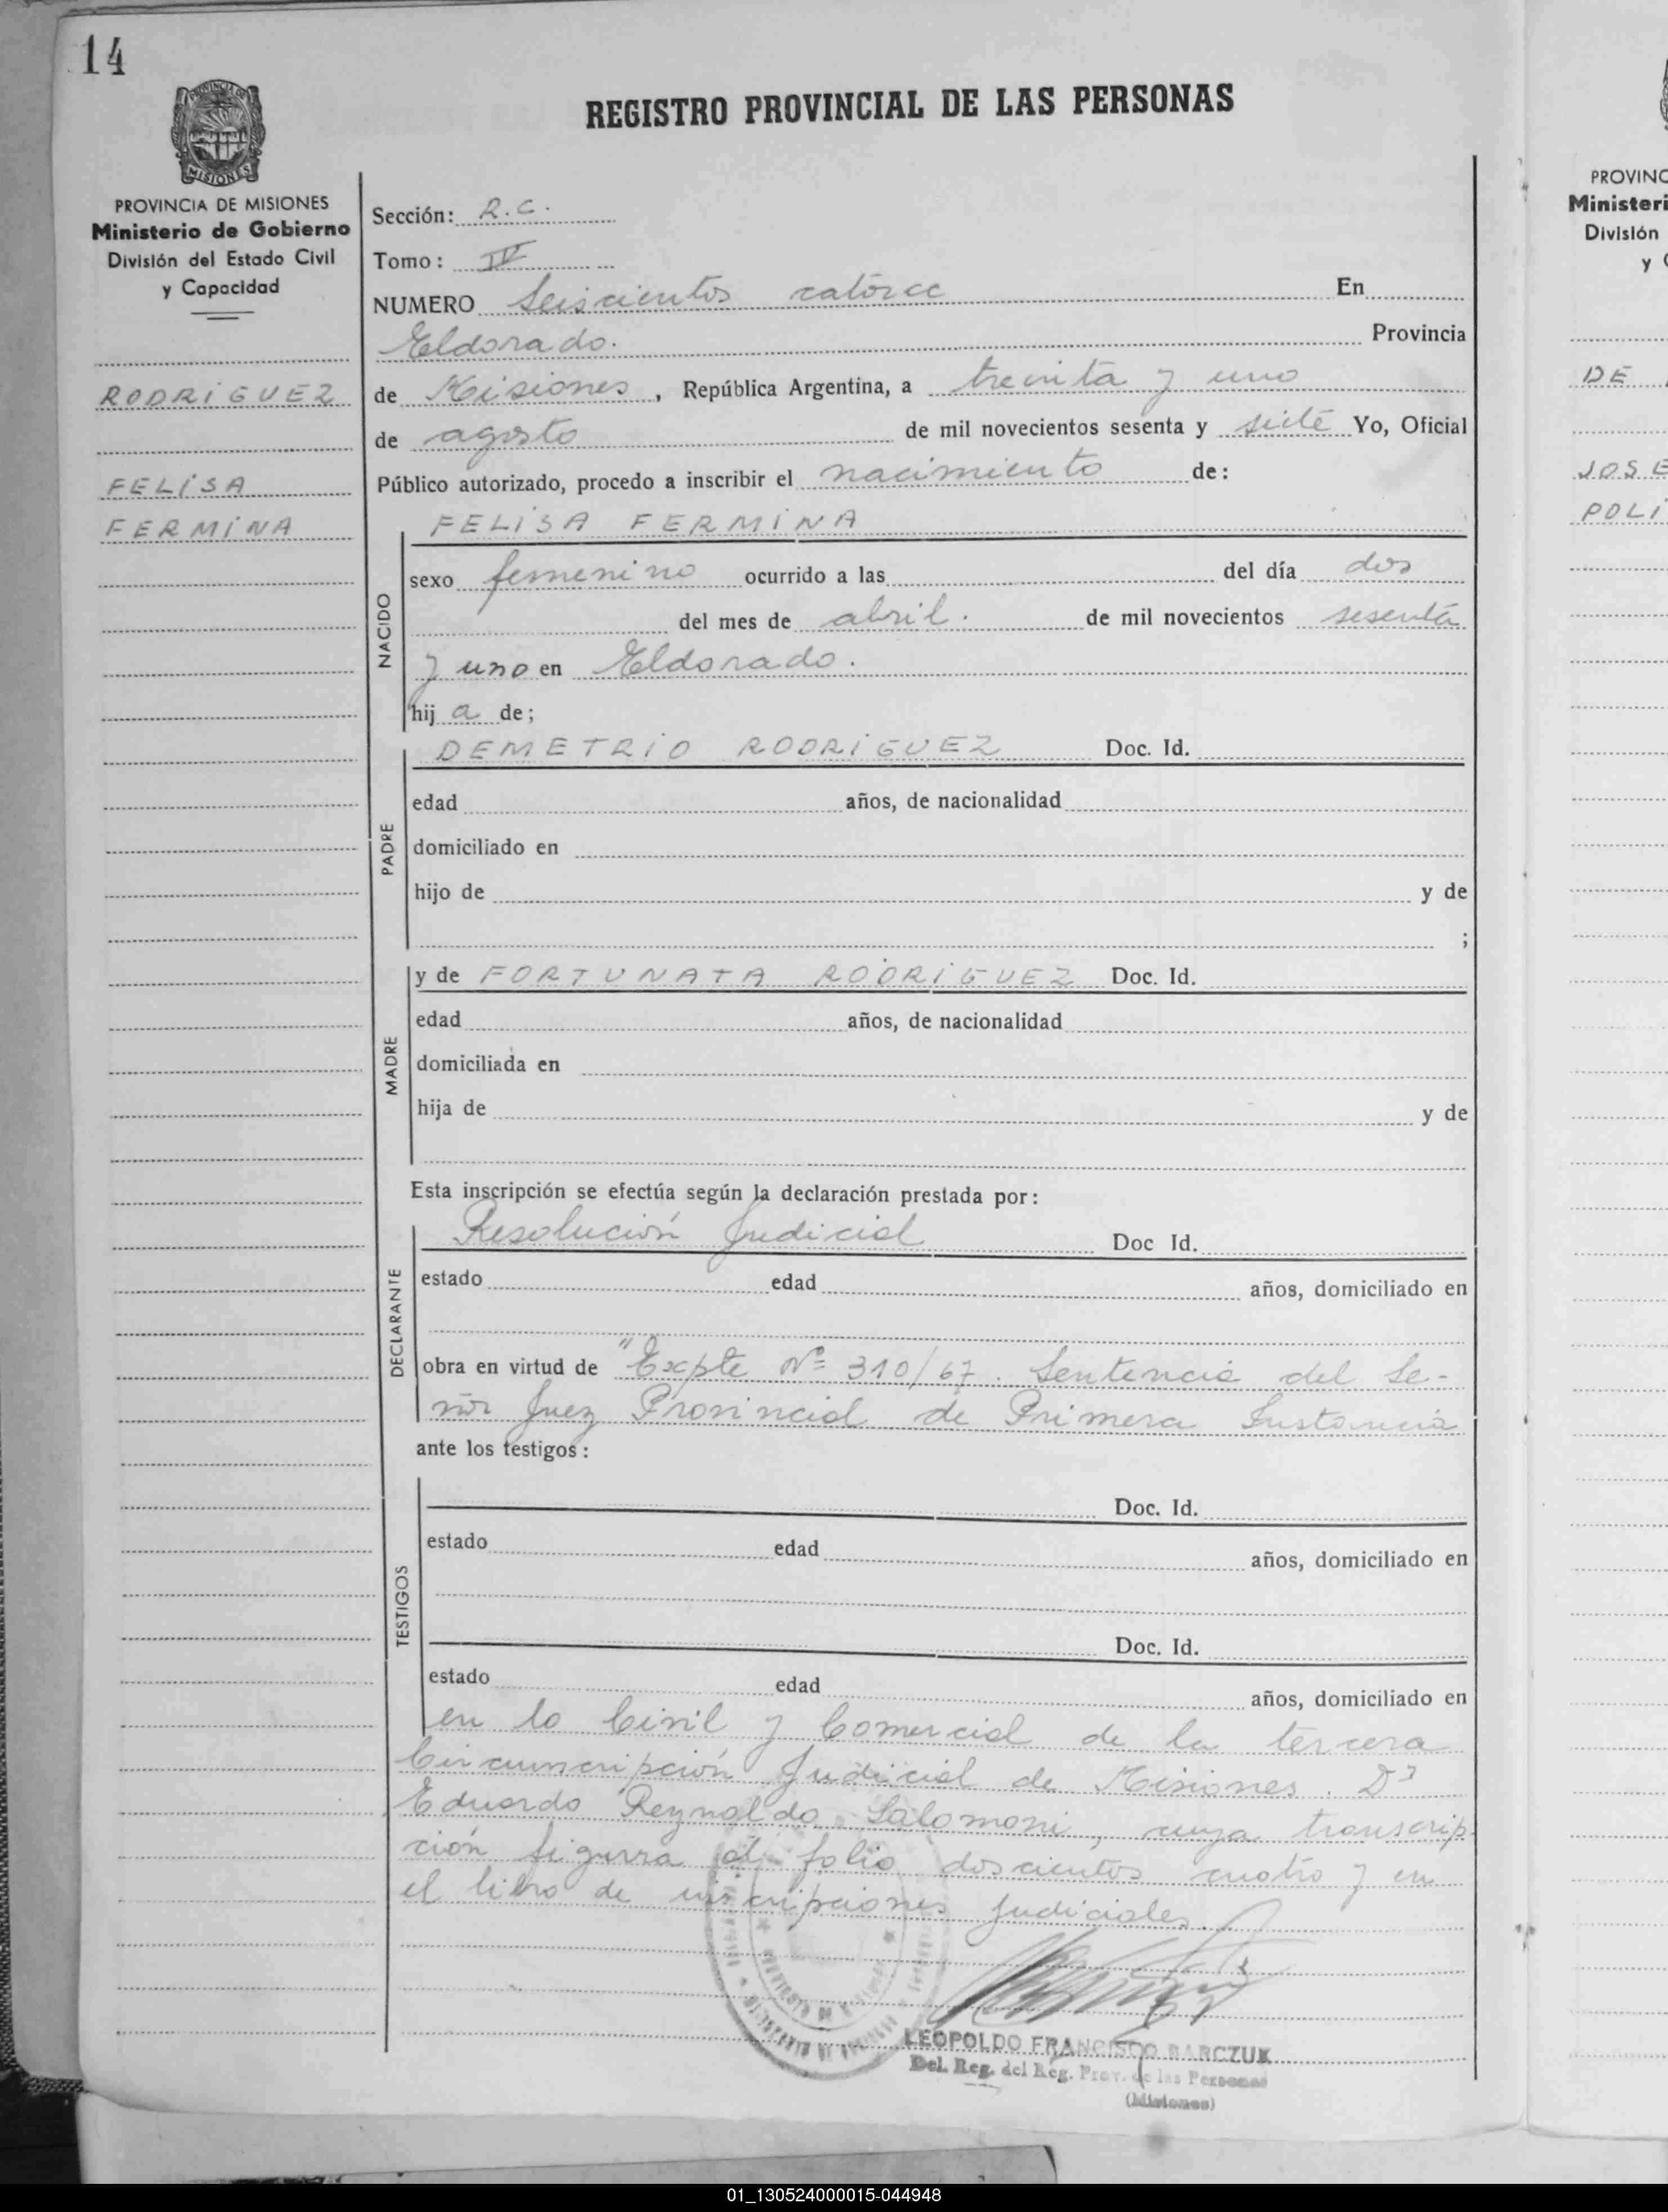 14
REGISTRO PROVINCIAL DE LAS PERSONAS
PROVINCIA DE
MISIONES
PROVINCIA DE MISIONES
Ministerio de Gobierno
División del Estado Civil
y Capacidad
RODRIGUEZ
FELISA
FERMINA
Sección: R.C.
Tomo: IV
NUMERO Seiscientos catorce En
Eldorado. Provincia
de Misiones, República Argentina, a treinta y uno
de agosto de mil novecientos sesenta y siete Yo, Oficial
Público autorizado, procedo a inscribir el nacimiento de:
FELISA FERMINA
NACIDO
sexo femenino ocurrido a las del día dos
del mes de abril. de mil novecientos sesenta
y uno en Eldorado.
hij a de;
PADRE
DEMETRIO RODRIGUEZ Doc. Id.
edad años, de nacionalidad
domiciliado en
hijo de y de
;
MADRE
y de FORTUNATA RODRIGUEZ Doc. Id.
edad años, de nacionalidad
domiciliada en
hija de y de
Esta inscripción se efectúa según la declaración prestada por:
DECLARANTE
Resolución Judicial Doc Id.
estado edad años, domiciliado en
obra en virtud de "Expte Nº 310/67. Sentencia del Se-
ñor Juez Provincial de Primera Instancia
ante los testigos:
TESTIGOS
Doc. Id.
estado edad años, domiciliado en
Doc. Id.
estado edad años, domiciliado en
en lo Civil y Comercial de la tercera
Circunscripción Judicial de Misiones. Dr
Eduardo Reynaldo Salomoni, cuya transcrip-
ción figura al folio doscientos cuatro y en
el libro de inscripciones Judiciales.
LEOPOLDO FRANCISCO BARCZUK
Del. Reg. del Reg. Prov. de las Personas
(Misiones)
PROVINC
Ministeri
División
y
DE
JOSE
POLI
01_130524000015-044948